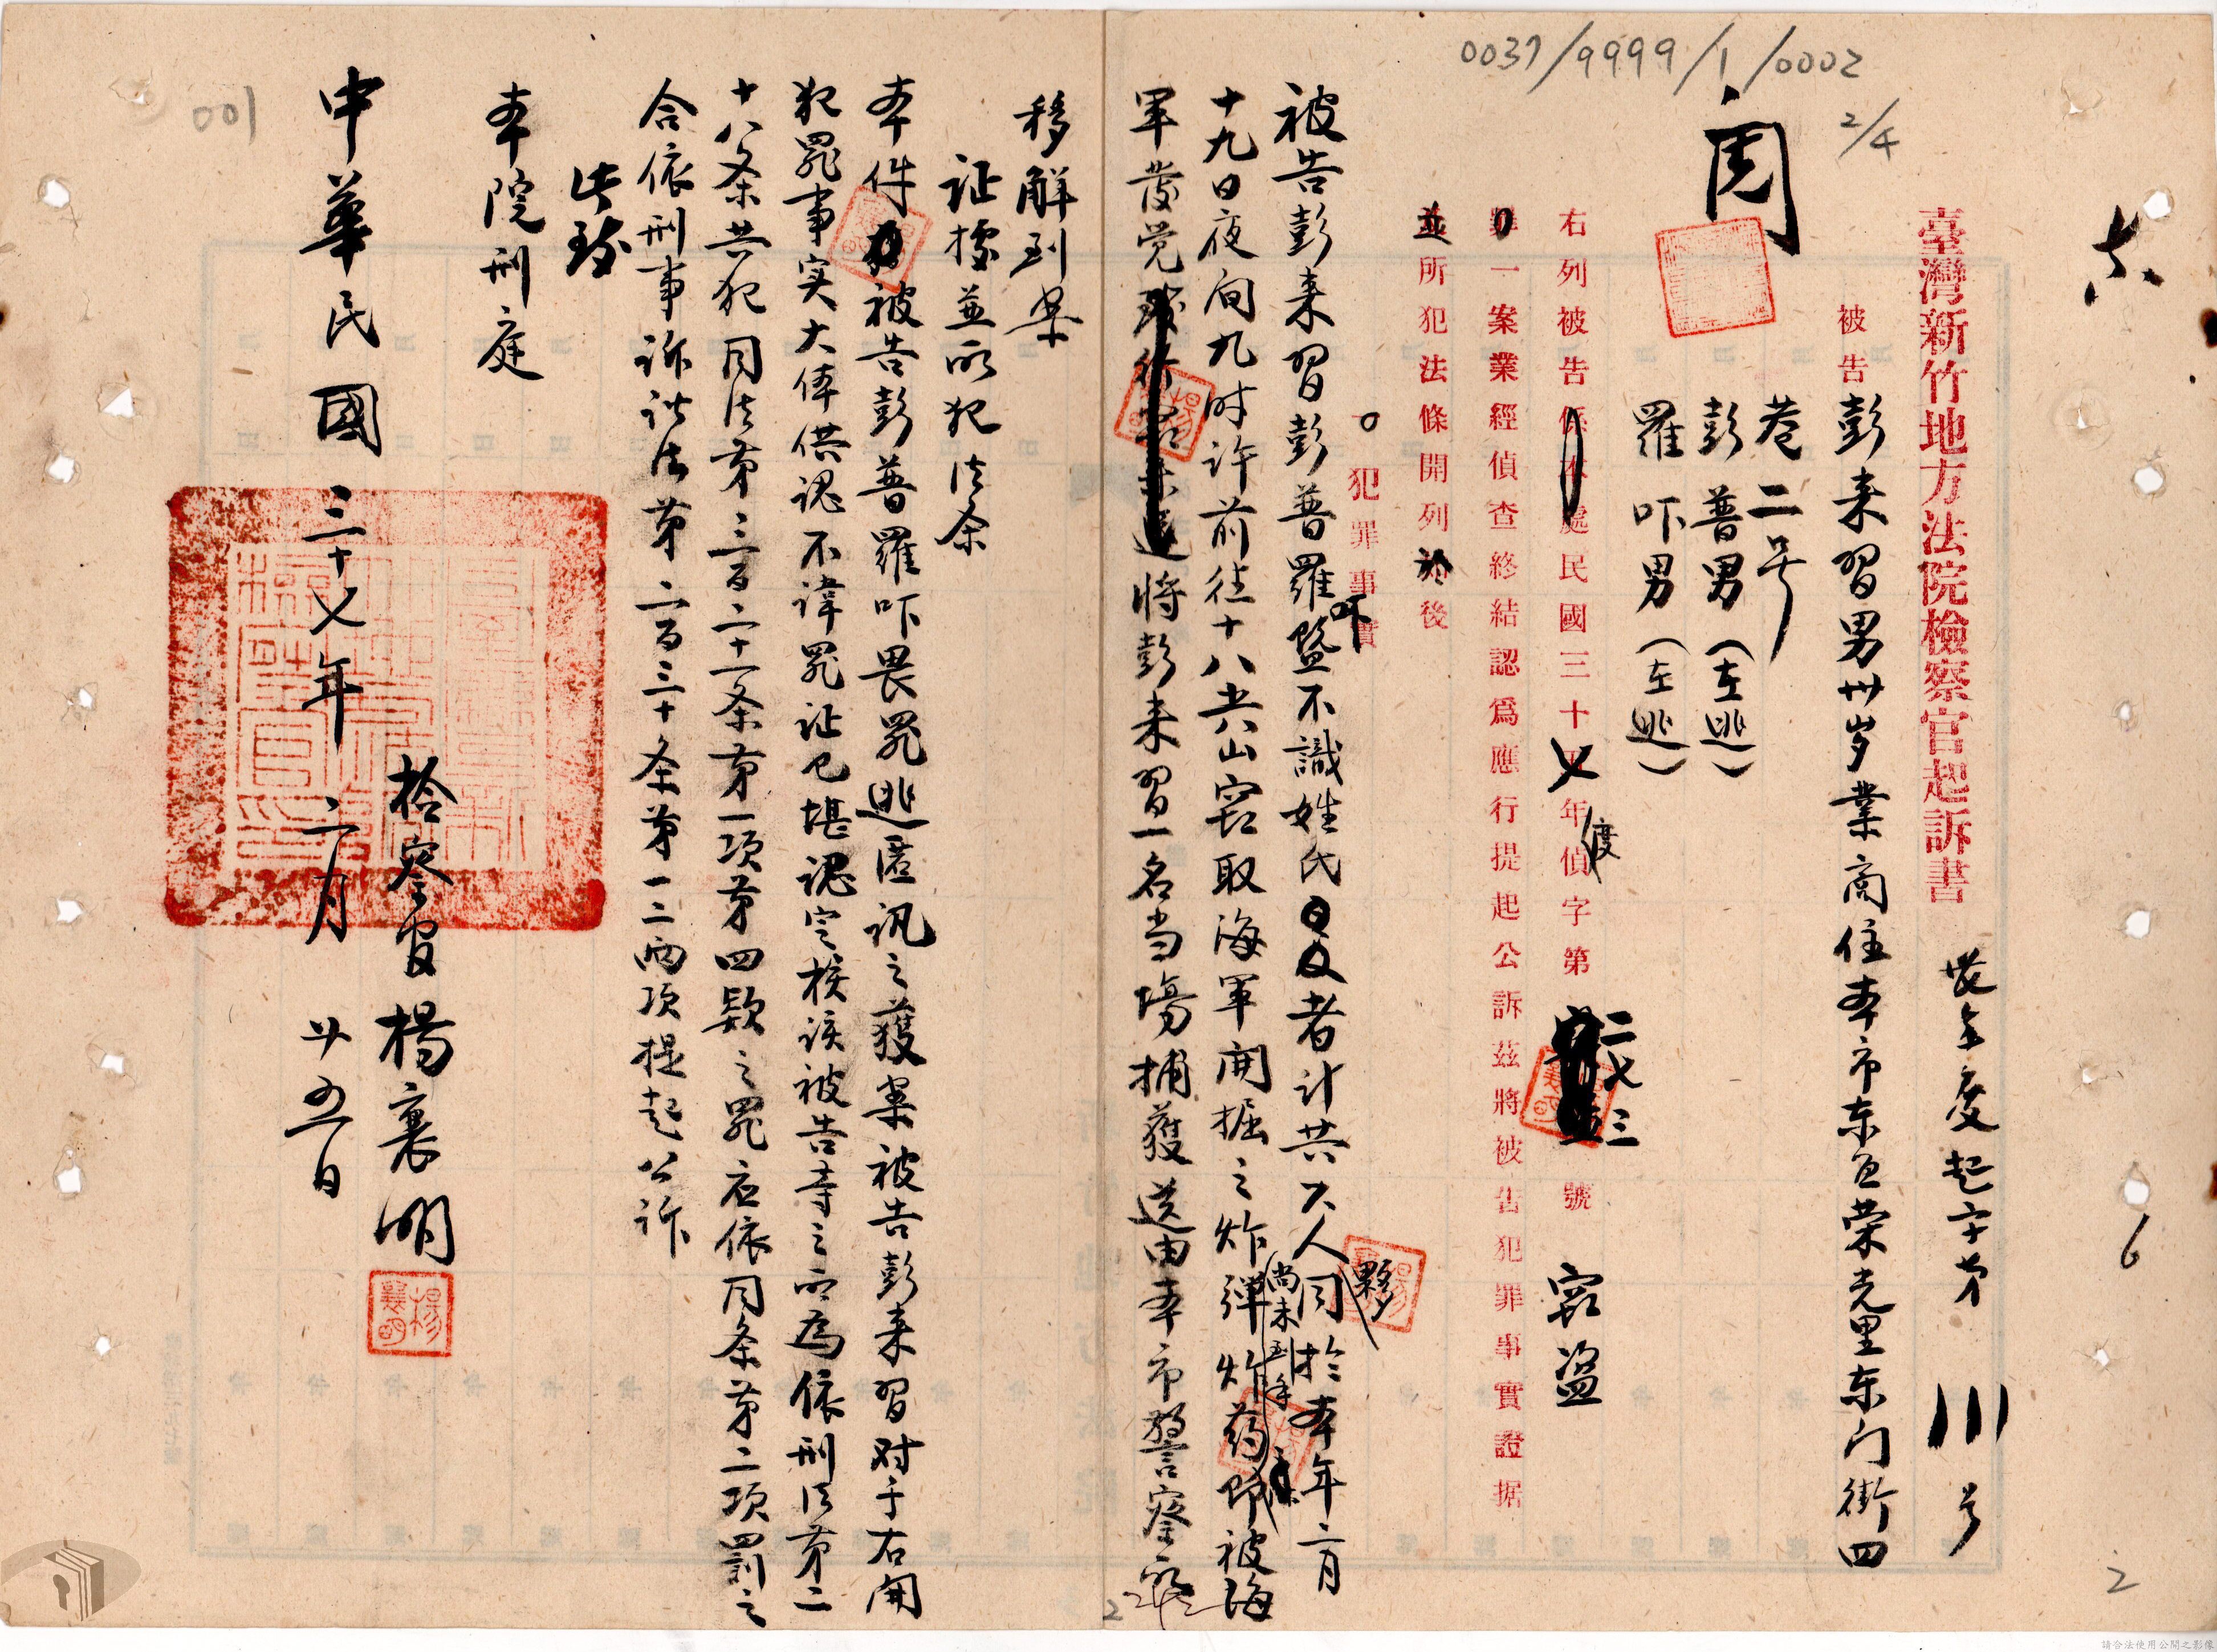 0037/9999/1/0002
2/4
六
臺灣新竹地方法院檢察官起訴書
年度起字第川号
被告 彭来習男卅岁業商住本市东区荣光里东门街四
巷二号
彭普男(在逃)
羅吓男(在逃)
周
右列被告係本處民國三十七年度偵字第二七三號竊盜
一案業經偵查終結認為應行提起公訴茲將被告犯罪事實證据
並所犯法條開列於後
犯罪事實
被告彭来習彭普羅吓暨不識姓氏者计共六人夥同於本年二月
十九日夜间九时许前往十八尖山窃取海軍開掘之炸弹炸葯尚未到手即被海
軍發觉將彭来習一名当場捕獲送由本市警察局
移解到案
证據並所犯法条
本件被告彭普羅吓畏罪逃匿讯之獲案被告彭来習对于右開
犯罪事实大体供認不諱罪证已堪認定核该被告等之所為依刑法第二
十八条共犯同法第三百二十一条第一项第四款之罪应依同条第二项罰之
合依刑事诉讼法第二百三十条第一二两项提起公诉
此致
本院刑庭
检察官楊襄明
楊襄明
中華民國三十七年二月廿五日
001
6
2
2
請合法使用公開之影像